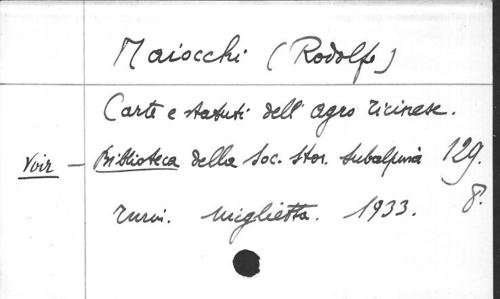 Maiocchi (Rodolfo)
Carte e statuti dell' agro ticinese.
Voir – Biblioteca della Soc. stor. subalpina 129.
Turin. Miglietta. 1933. 8.